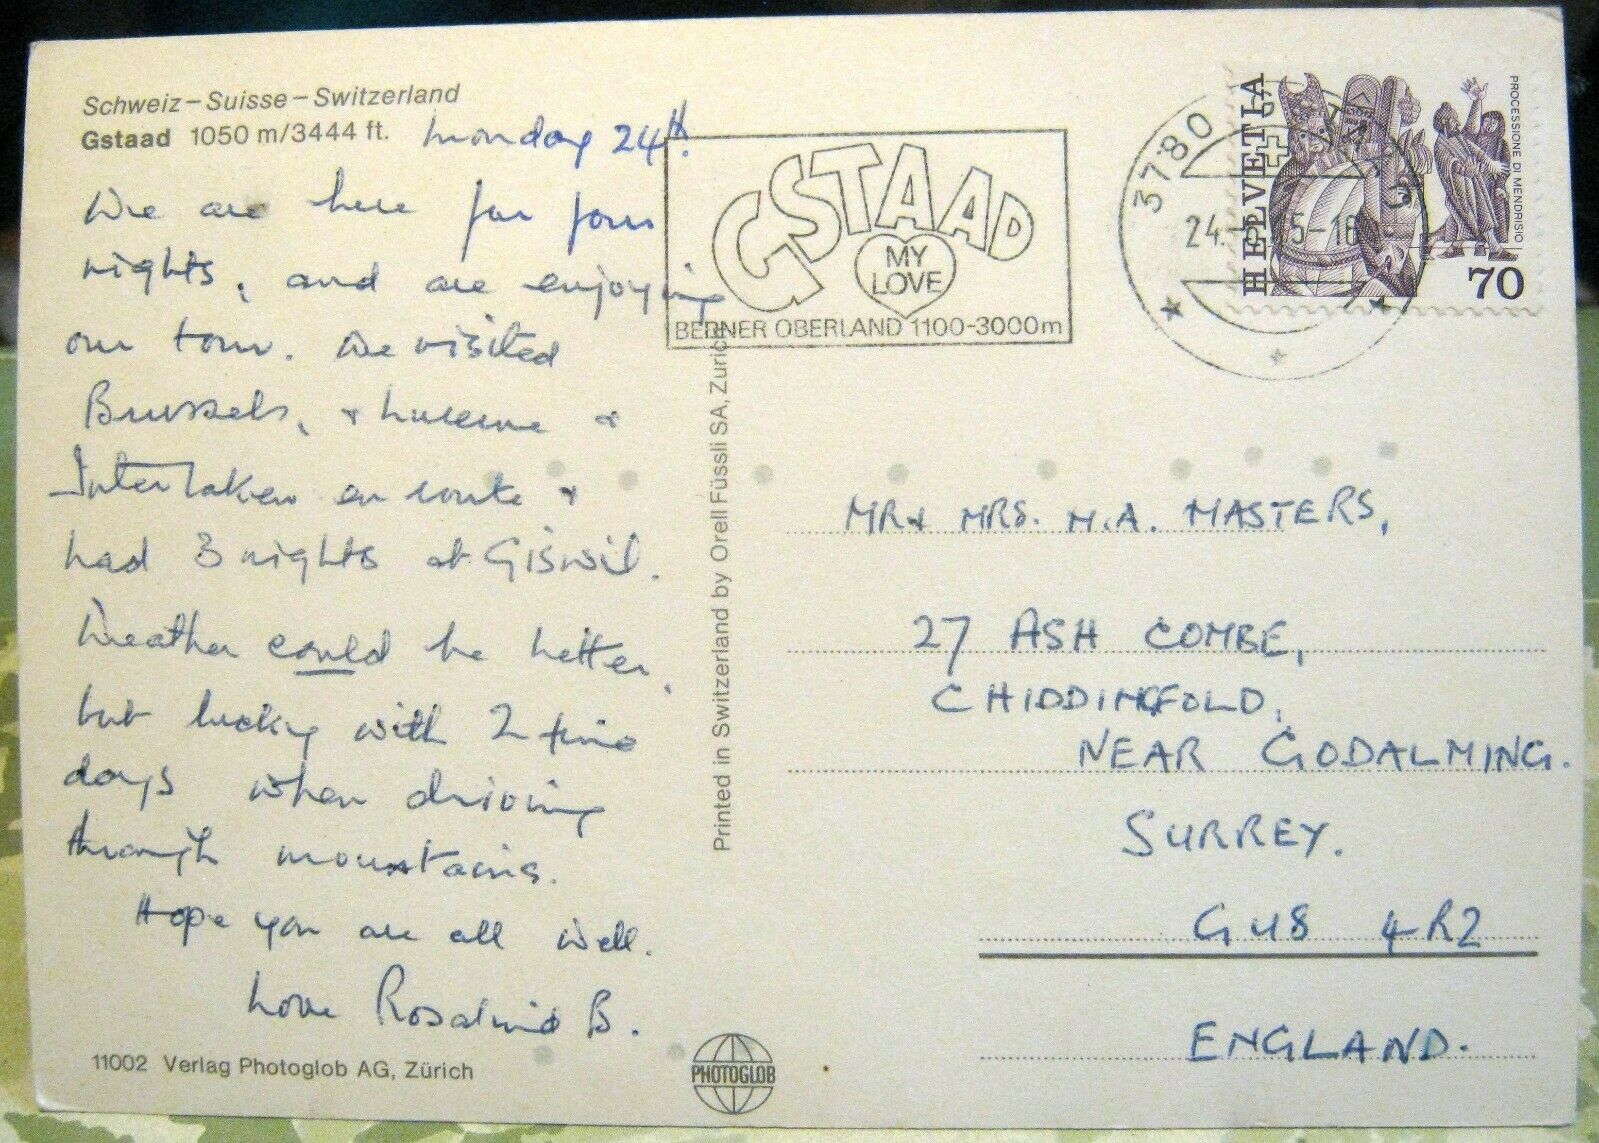 Schweiz – Suisse – Switzerland
Gstaad 1050 m/3444 ft.
Monday 24th.
We are here for four
nights, and are enjoying
our tour. We visited
Brussels, & Lucerne &
Interlaken en route &
had 3 nights at Giswil.
Weather could be better,
but lucky with 2 fine
days when driving
through mountains.
Hope you are all well.
Love Rosalind B.
11002 Verlag Photoglob AG, Zürich
Printed in Switzerland by Orell Füssli SA, Zürich
PHOTOGLOB
GSTAAD
MY
LOVE
BERNER OBERLAND 1100-3000m
3780
24.
15-16
HELVETIA
PROCESSIONE DI MENDRISIO
70
MR & MRS. M.A. MASTERS,
27 ASH COMBE,
CHIDDINGFOLD,
NEAR GODALMING.
SURREY.
GU8 4RZ
ENGLAND.